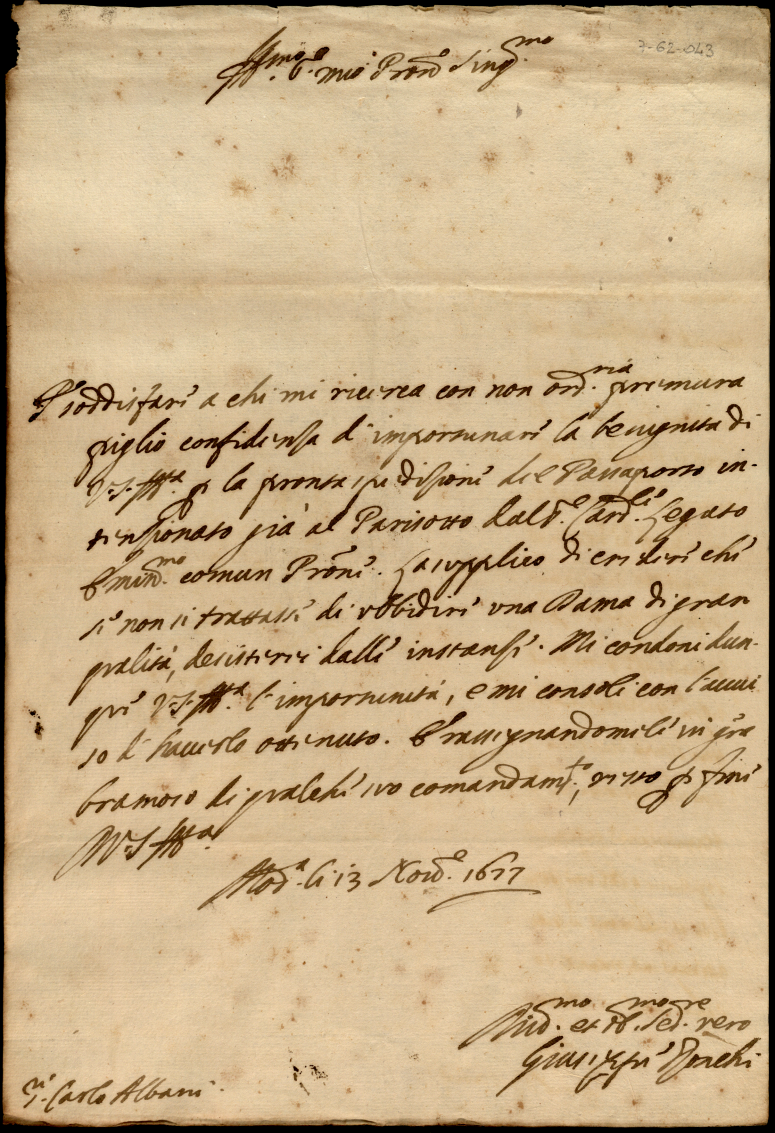 7-62-043
Ill.mo S.r mio Pron. Sing.mo
P. soddisfare a chi mi ricerca con non ord.ria premura
piglio confidenza d'importunare la benignità di
V.S. Ill.ma p. la pronta spedizione del Passaporto in-
tenzionato già al Parisotto dal S.r Card.le Legato
Emin.mo comun Prone. La supplico di credere che
se non si trattasse di ubbidire una Dama di gran
qualità, desisterei dalle instanze. Mi condoni dun-
que V.S. Ill.ma l'importunità, e mi consoli con l'avvi
so d'haverlo ottenuto. E rassegnandomele in gra
bramoso di qualche suo comandam.to, resto p. fine
D. V.S. Ill.ma
Mod.a li 13 Nov.e 1677
Div.mo et Obl. Sed. vero
Giuseppe
S.r Carlo Albani